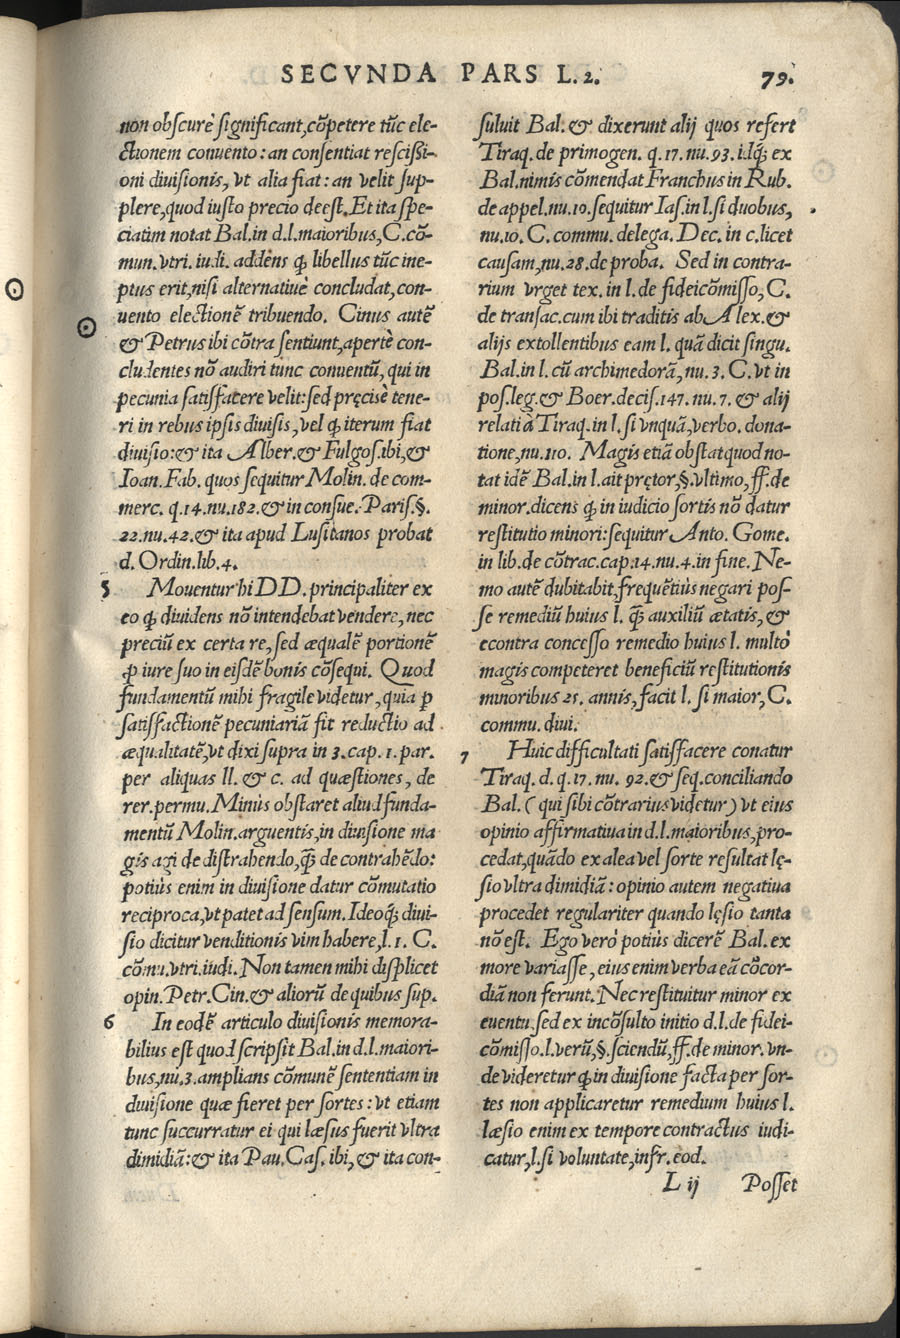 SECVNDA PARS L.2. 79.
non obscurè significant, cõpetere tũc ele-
ctionem conuento: an consentiat rescissi-
oni diuisionis, vt alia fiat: an velit sup-
plere, quod iusto precio deest. Et ita spe-
ciatim notat Bal. in d.l. maioribus, C. cõ-
mun. vtri. iudi. addens ꝙ libellus tũc ine-
ptus erit, nisi alternatiuè concludat, con-
uento electionẽ tribuendo. Cinus autẽ
& Petrus ibi cõtra sentiunt, apertè con-
cludentes nõ audiri tunc conuentũ, qui in
pecunia satisfacere velit: sed pręcisè tene-
ri in rebus ipsis diuisis, vel ꝙ iterum fiat
diuisio: & ita Alber. & Fulgos. ibi, &
Ioan. Fab. quos sequitur Molin. de com-
merc. q. 14. nu. 182. & in consue. Paris. §.
22. nu. 42. & ita apud Lusitanos probat
d. Ordin. lib. 4.
5 Mouentur hi DD. principaliter ex
eo ꝙ diuidens nõ intendebat vendere, nec
preciũ ex certa re, sed æqualẽ portionẽ
ꝓ iure suo in eisdẽ bonis cõsequi. Quod
fundamentũ mihi fragile videtur, quia ꝑ
satisfactionẽ pecuniariã fit reductio ad
æqualitatẽ, vt dixi supra in 3. cap. 1. par.
per aliquas ll. & c. ad quæstiones, de
rer. permu. Minùs obstaret aliud funda-
mentũ Molin. arguentis, in diuisione ma
gis agi de distrahendo, ꝗ̃ de contrahẽdo:
potiùs enim in diuisione datur cõmutatio
reciproca, vt patet ad sensum. Ideoq́; diui-
sio dicitur venditionis vim habere, l. 1. C.
cõmu. vtri. iudi. Non tamen mihi displicet
opin. Petr. Cin. & aliorũ de quibus sup.
6 In eodẽ articulo diuisionis memora-
bilius est quod scripsit Bal. in d.l. maiori-
bus, nu. 3. amplians cõmunẽ sententiam in
diuisione quæ fieret per sortes: vt etiam
tunc succurratur ei qui læsus fuerit vltra
dimidiã: & ita Pau. Cas. ibi, & ita con-
suluit Bal. & dixerunt alij quos refert
Tiraq. de primogen. q. 17. nu. 93. idq́; ex
Bal. nimis cõmendat Franchus in Rub.
de appel. nu. 10. sequitur Ias. in l. si duobus,
nu. 10. C. commu. delega. Dec. in c. licet
causam, nu. 28. de proba. Sed in contra-
rium vrget tex. in l. de fideicõmisso, C.
de transac. cum ibi traditis ab Alex. &
alijs extollentibus eam l. quã dicit singu.
Bal. in l. cũ archimedorã, nu. 3. C. vt in
pos. leg. & Boer. decis. 147. nu. 7. & alij
relati à Tiraq. in l. si vnquã, verbo. dona-
tione, nu. 110. Magis etiã obstat quod no-
tat idẽ Bal. in l. ait prętor, §. vltimo, ff. de
minor. dicens ꝙ in iudicio sortis nõ datur
restitutio minori: sequitur Anto. Gome.
in lib. de cõtrac. cap. 14. nu. 4. in fine. Ne-
mo autẽ dubitabit, frequẽtiùs negari pos-
se remediũ huius l. ꝗ̃ auxiliũ ætatis, &
econtra concesso remedio huius l. multò
magis competeret beneficiũ restitutionis
minoribus 25. annis, facit l. si maior, C.
commu. diui.
7 Huic difficultati satisfacere conatur
Tiraq. d. q. 17. nu. 92. & seq. conciliando
Bal. (qui sibi cõtrarius videtur) vt eius
opinio affirmatiua in d.l. maioribus, pro-
cedat, quãdo ex alea vel sorte resultat lę-
sio vltra dimidiã: opinio autem negatiua
procedet regulariter quando lęsio tanta
nõ est. Ego verò potiùs dicerẽ Bal. ex
more variasse, eius enim verba eã cõcor-
diã non ferunt. Nec restituitur minor ex
euentu, sed ex incõsulto initio d.l. de fidei-
cõmisso. l. verũ, §. sciendũ, ff. de minor. vn-
de videretur ꝙ in diuisione facta per sor-
tes non applicaretur remedium huius l.
læsio enim ex tempore contractus iudi-
catur, l. si voluntate, infr. eod.
L ij Posset